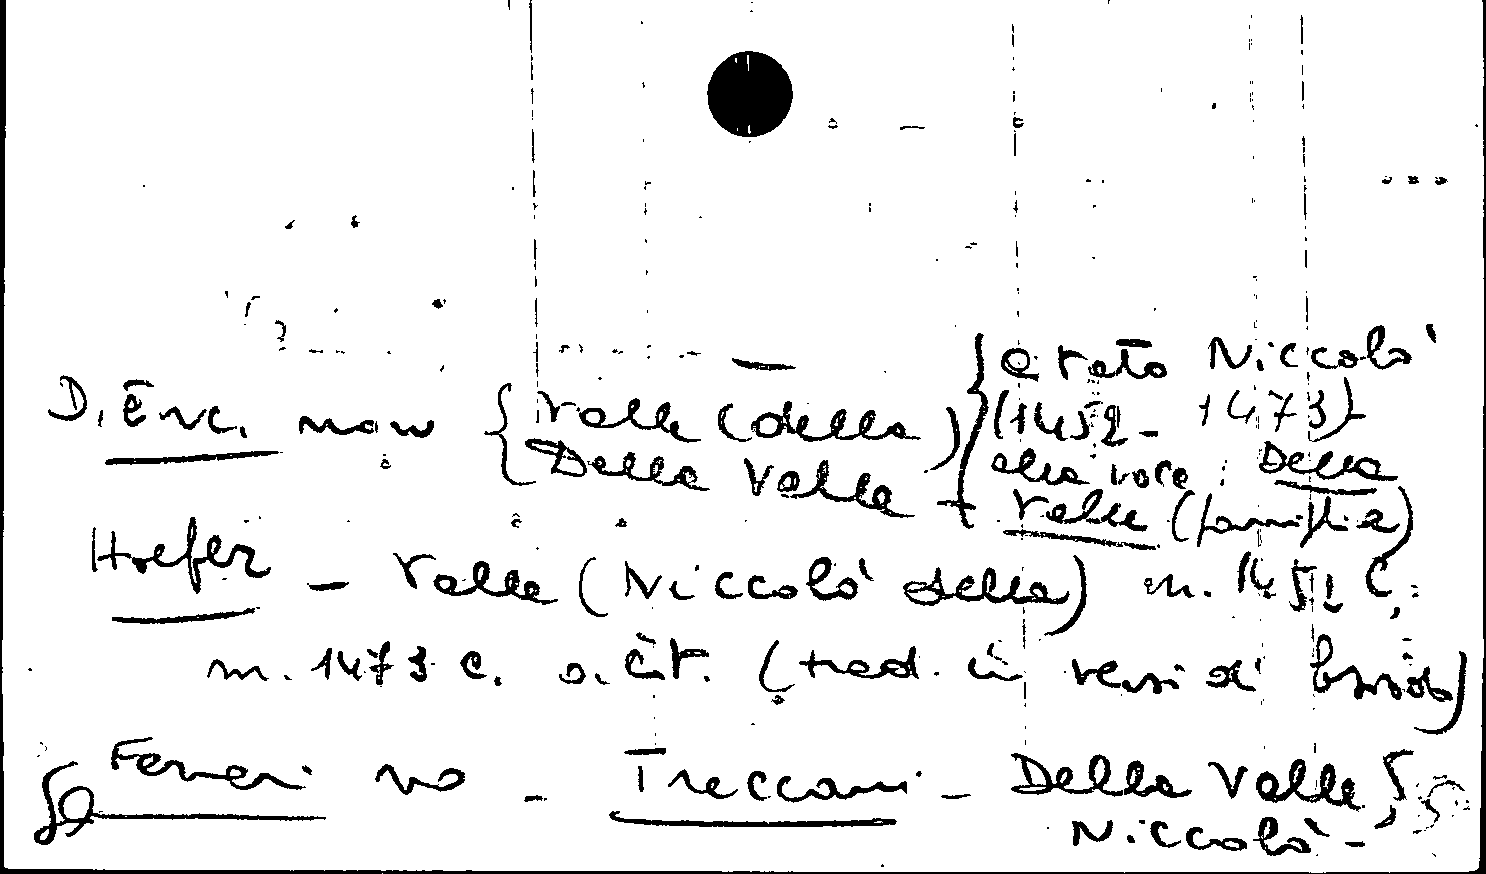 D. Enc. nuov { Valle (della)
Della Valle
{ è nato Niccolò
(1452 - 1473)
alla voce: Della
Valle (famiglia)
Hoefer - Valle (Niccolò della) n. 1451 C.
m. 1473 c. o. cit. (trad. in versi di Esiodo)
Ferrari no - Treccani - Della Valle,
Niccolò -